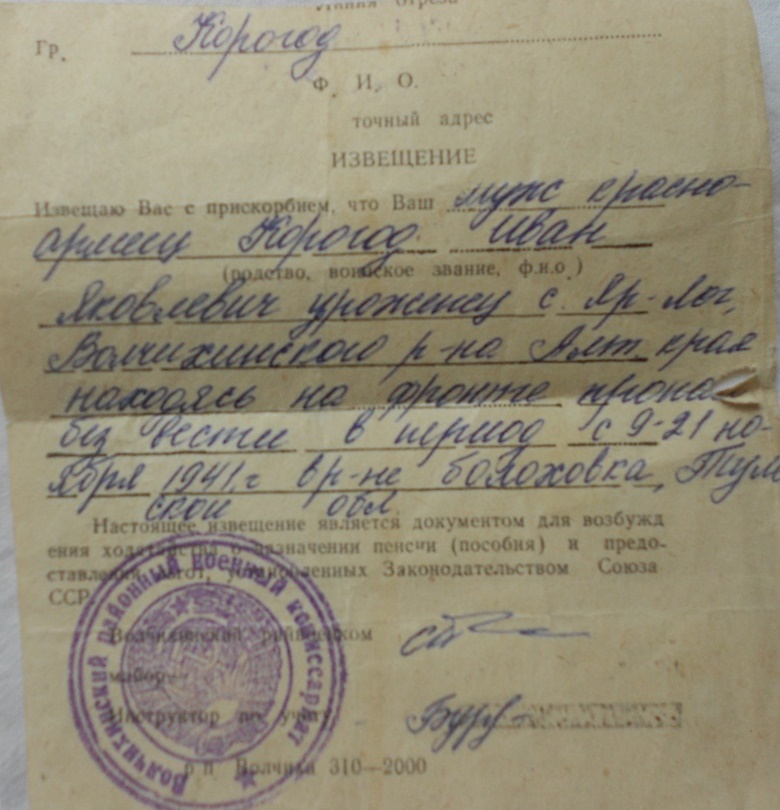 Гр. Корогод
Ф. И. О.
точный адрес
ИЗВЕЩЕНИЕ
Извещаю Вас с прискорбием, что Ваш муж красно-
армеец Корогод Иван
(родство, воинское звание, ф.и.о.)
Яковлевич уроженец с. Яр-Лог,
Волчихинского р-на Алт. края
находясь на фронте пропал
без вести в период с 9-21 но-
ября 1941.г в р-не болоховка, Туль
ской обл
Настоящее извещение является документом для возбужд
ения ходатайства о назначении пенсии (пособия) и предо-
ставлении льгот, установленных Законодательством Союза
ССР
Волчихинский райвоенком
майор
Инструктор по учету
р п Волчиха 310—2000
Волчихинский районный военный комиссариат